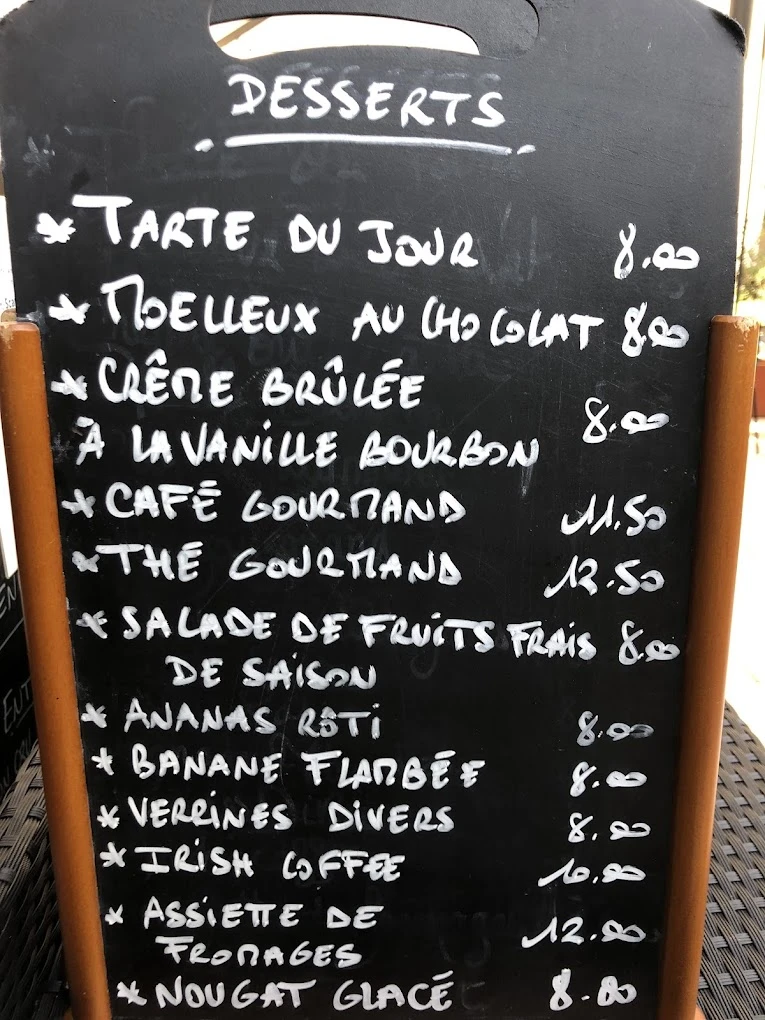 DESSERTS
* TARTE DU JOUR 8.00
* MOELLEUX AU CHOCOLAT 8.00
* CRÊME BRÛLÉE
À LA VANILLE BOURBON 8.00
* CAFÉ GOURMAND 11.50
* THÉ GOURMAND 12.50
* SALADE DE FRUITS FRAIS 8.00
DE SAISON
* ANANAS RÔTI 8.00
* BANANE FLAMBÉE 8.00
* VERRINES DIVERS 8.00
* IRISH COFFEE 10.00
* ASSIETTE DE
FROMAGES 12.00
* NOUGAT GLACÉ 8.00